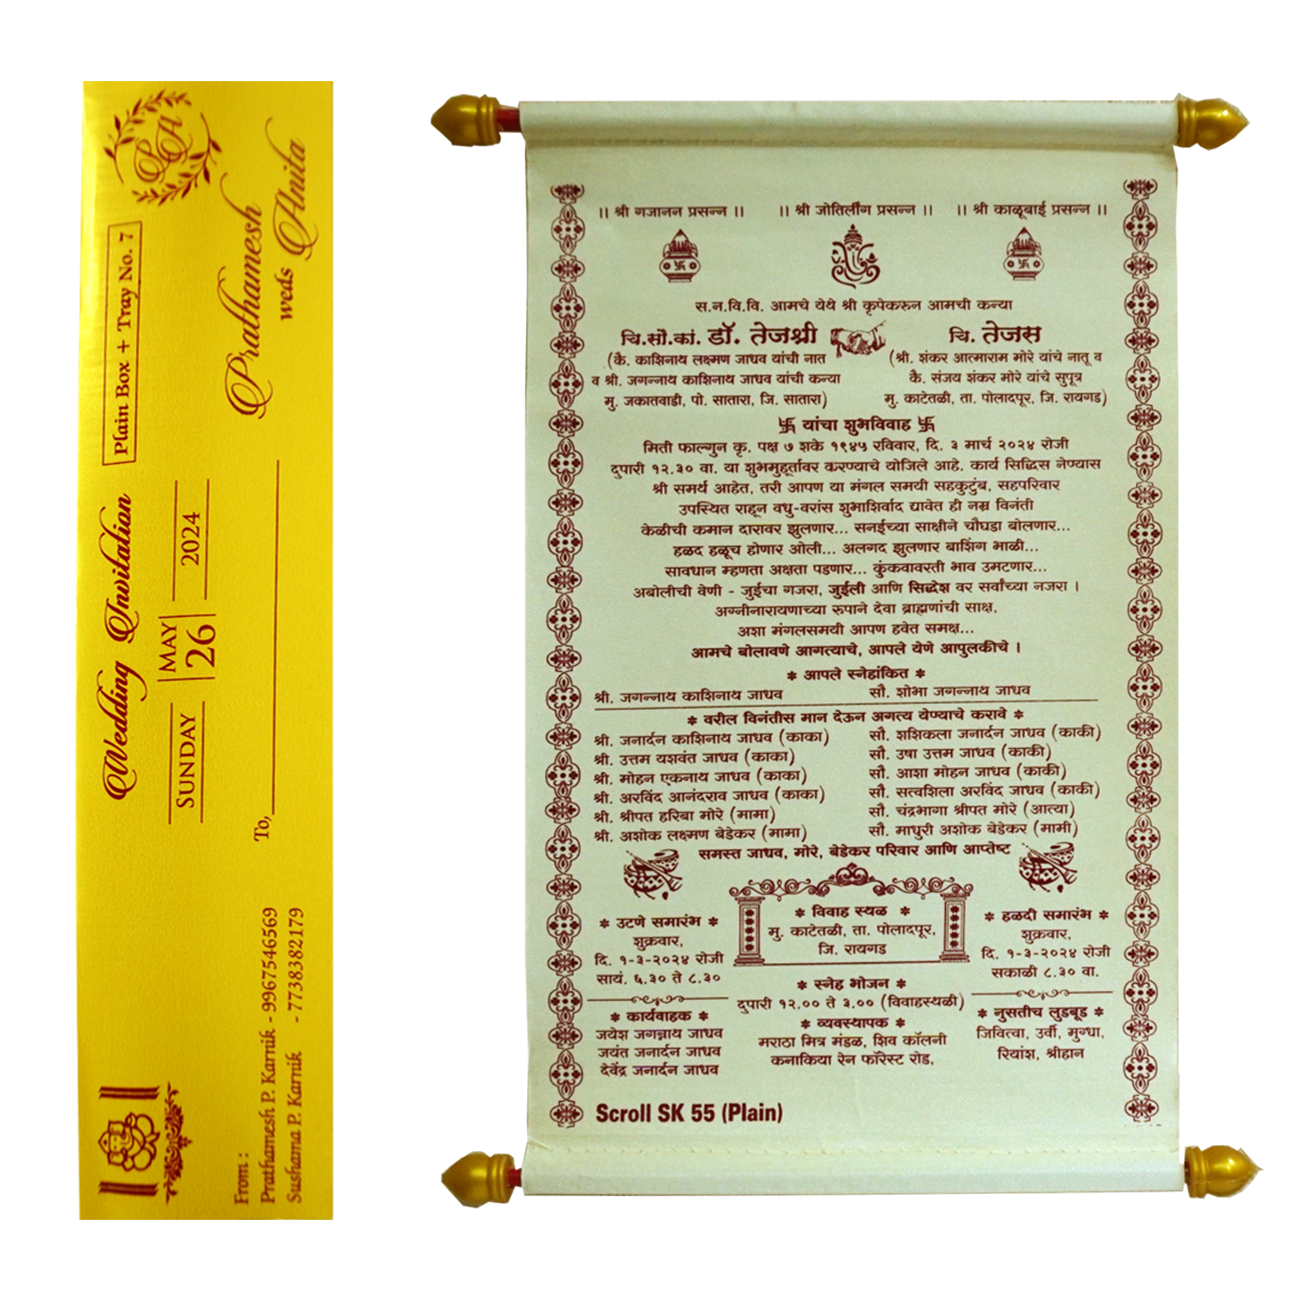 SA
Plain Box + Tray No. 7
Prathamesh
weds Anita
Wedding Invitation
SUNDAY MAY 26 2024
To,
From :
Prathamesh P. Karnik - 9967546569
Sushama P. Karnik - 7738382179
|| श्री गजानन प्रसन्न || || श्री जोतिर्लींग प्रसन्न || || श्री काळूबाई प्रसन्न ||
स.न.वि.वि. आमचे येथे श्री कृपेकरुन आमची कन्या
चि.सौ.कां. डॉ. तेजश्री
(कै. काशिनाथ लक्ष्मण जाधव यांची नात
व श्री. जगन्नाथ काशिनाथ जाधव यांची कन्या
मु. जकातवाडी, पो. सातारा, जि. सातारा)
चि. तेजस
(श्री. शंकर आत्माराम मोरे यांचे नातू व
कै. संजय शंकर मोरे यांचे सुपूत्र
मु. काटेतळी, ता. पोलादपूर, जि. रायगड)
卐 यांचा शुभविवाह 卐
मिती फाल्गुन कृ. पक्ष ७ शके १९४५ रविवार, दि. ३ मार्च २०२४ रोजी
दुपारी १२.३० वा. या शुभमुहूर्तावर करण्याचे योजिले आहे. कार्य सिद्धिस नेण्यास
श्री समर्थ आहेत, तरी आपण या मंगल समयी सहकुटुंब, सहपरिवार
उपस्थित राहून वधु-वरांस शुभाशिर्वाद द्यावेत ही नम्र विनंती
केळीची कमान दारावर झुलणार... सनईच्या साक्षीने चौघडा बोलणार...
हळद हळूच होणार ओली... अलगद झुलणार बाशिंग भाळी...
सावधान म्हणता अक्षता पडणार... कुंकवावरती भाव उमटणार...
अबोलीची वेणी - जुईचा गजरा, जुईली आणि सिद्धेश वर सर्वांच्या नजरा |
अग्नीनारायणाच्या रुपाने देवा ब्राह्मणांची साक्ष,
अशा मंगलसमयी आपण हवेत समक्ष...
आमचे बोलावणे आगत्याचे, आपले येणे आपुलकीचे |
* आपले स्नेहांकित *
श्री. जगन्नाथ काशिनाथ जाधव सौ. शोभा जगन्नाथ जाधव
* वरील विनंतीस मान देऊन अगत्य येण्याचे करावे *
श्री. जनार्दन काशिनाथ जाधव (काका) सौ. शशिकला जनार्दन जाधव (काकी)
श्री. उत्तम यशवंत जाधव (काका) सौ. उषा उत्तम जाधव (काकी)
श्री. मोहन एकनाथ जाधव (काका) सौ. आशा मोहन जाधव (काकी)
श्री. अरविंद आनंदराव जाधव (काका) सौ. सत्वशिला अरविंद जाधव (काकी)
श्री. श्रीपत हरिबा मोरे (मामा) सौ. चंद्रभागा श्रीपत मोरे (आत्या)
श्री. अशोक लक्ष्मण बेडेकर (मामा) सौ. माधुरी अशोक बेडेकर (मामी)
समस्त जाधव, मोरे, बेडेकर परिवार आणि आप्तेष्ट
* उटणे समारंभ *
शुक्रवार,
दि. १-३-२०२४ रोजी
सायं. ६.३० ते ८.३०
* विवाह स्थळ *
मु. काटेतळी, ता. पोलादपूर,
जि. रायगड
* हळदी समारंभ *
शुक्रवार,
दि. १-३-२०२४ रोजी
सकाळी ८.३० वा.
* स्नेह भोजन *
दुपारी १२.०० ते ३.०० (विवाहस्थळी)
* कार्यवाहक *
जयेश जगन्नाथ जाधव
जयंत जनार्दन जाधव
देवेंद्र जनार्दन जाधव
* व्यवस्थापक *
मराठा मित्र मंडळ, शिव कॉलनी
कनाकिया रेन फॉरेस्ट रोड,
* नुसतीच लुडबूड *
जिवित्वा, उर्वी, मुग्धा,
रियांश, श्रीहान
Scroll SK 55 (Plain)